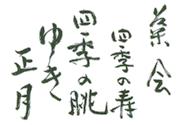 葉会
四季の寿
四季の眺
ゆき
正月